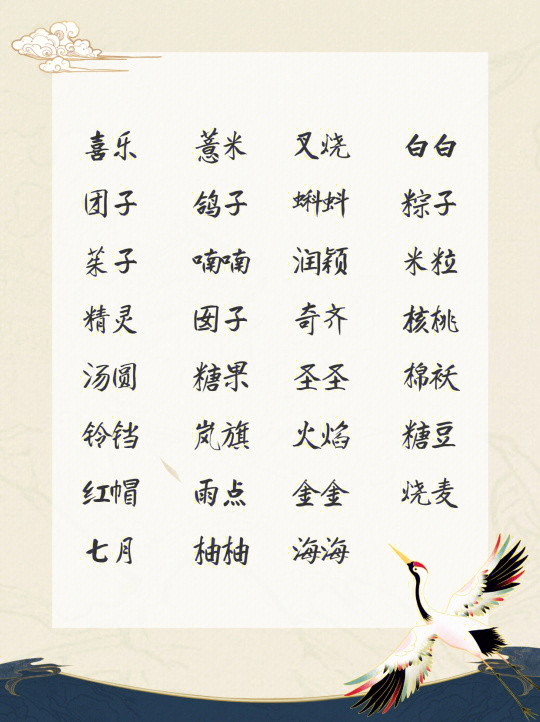 喜乐 薏米 叉烧 白白
团子 鸽子 蝌蚪 粽子
茱子 喃喃 润颖 米粒
精灵 囡子 奇齐 核桃
汤圆 糖果 圣圣 棉袄
铃铛 岚旗 火焰 糖豆
红帽 雨点 金金 烧麦
七月 柚柚 海海